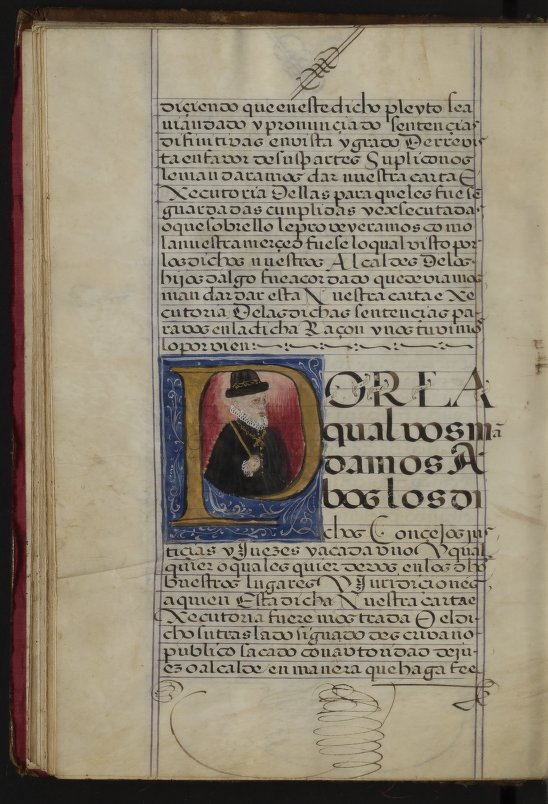 diçiendo que en este dicho pleyto sea
uian dado y pronunçiado sentençias
difinitivas en vista y grado De rrevis
ta en favor de sus partes Suplico nos
le mandaramos dar nuestra carta E
Xecutoria Dellas para que les fuese
guardadas cunplidas y exsecutadas
o que sobrello le proveyeramos como
la nuestra merçed fuese lo qual visto por
los dichos nuestros Alcaldes De los
hijos dalgo fue acordado que deviamos
mandar dar esta Nuestra carta e Xe
cutoria De las dichas sentencias pa
ra vos en la dicha Raçon y nos tuvimos
lo por vien:
PORLA
qual vos mã
damos A
bos los di
chos Concejos jus
ticias y Juezes y a cada vno Y qual
quier o quales quier de vos en los dhos
buestros lugares Y Jurdiciones
a quien Esta dicha Nuestra carta e
Xecutoria fuere mostrada O el di
cho su traslado signado de escrivano
publico sacado con avtoridad de ju
ez o alcalde en manera que haga fee